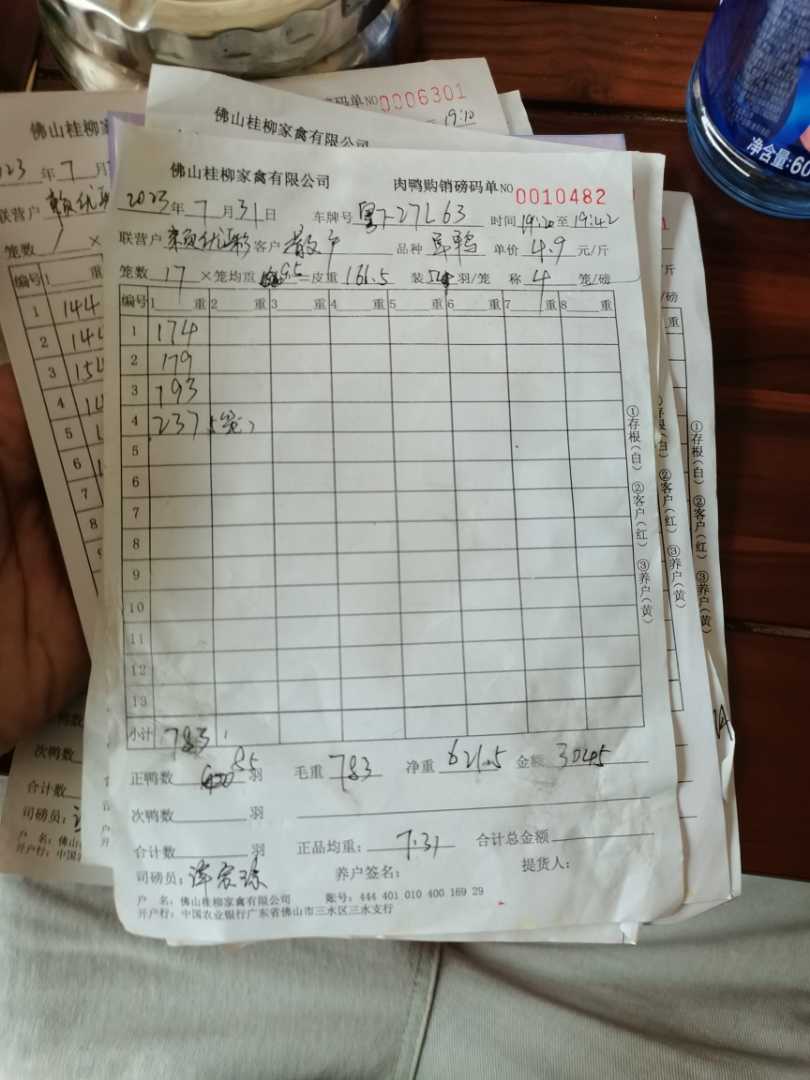 码单NO0006301
佛山桂柳家禽有限公司
19:10
佛山桂柳家
023年7月
联营户
笼数 ×
编号 1 重
1 144
2 144
3 154
4
5
6
7
8
次鸭数
合计数
司磅员:
户 名:佛山
开户行:中国
佛山桂柳家禽有限公司 肉鸭购销磅码单NO 0010482
2023年7月31日 车牌号 粤 27L63 时间19:20至19:42
联营户 客户 散户 品种 单价 4.9 元/斤
笼数 17 ×笼均重 9.5 =皮重 161.5 装 5 羽/笼 称 4 笼/磅
编号 1 重 2 重 3 重 4 重 5 重 6 重 7 重 8 重
1 174
2 179
3 193
4 237 5笼
5
6
7
8
9
10
11
12
13
小计 783
正鸭数 85 羽 毛重 783 净重 621.5 金额 3045
次鸭数 羽
合计数 羽 正品均重: 7.31 合计总金额
司磅员: 养户签名: 提货人:
户 名:佛山桂柳家禽有限公司 账号:444 401 010 400 169 29
开户行:中国农业银行广东省佛山市三水区三水支行
①存根(白) ②客户(红) ③养户(黄)
①存根(白) ②客户(红) ③养户(黄)
/斤
/磅
重
净含量:60